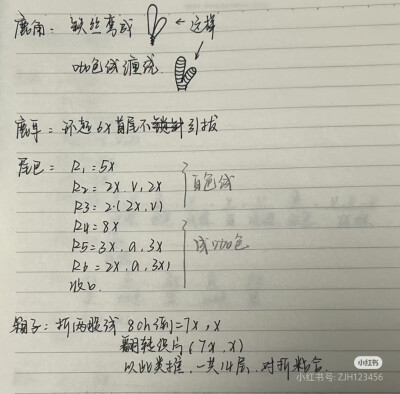 鹿角: 铁丝弯成 ← 这样
咖色线缠绕
鹿耳: 环起6x首尾不引拔
尾巴: R1=5x
R2=2x,v,2x
白色线
R3=2·(2x,v)
R4=8x
R5=3x,a,3x
浅咖色
R6=2x,a,3x,
收口
折两股线 8ch 钩=7x,x
翻转织片(7x,x)
以此类推,一共14层,对折粘合.
小红书
小红书号: ZJH123456